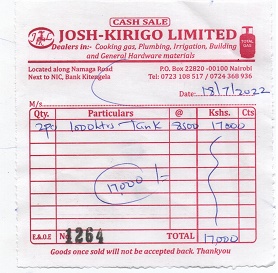 CASH SALE
JOSH-KIRIGO LIMITED
TOTAL GAS
Dealers in:- Cooking gas, Plumbing, Irrigation, Building
and General Hardware materials
Located along Namaga Road P.O. Box 22820 -00100 Nairobi
Next to NIC, Bank Kitengela Tel: 0723 108 517 / 0724 368 936
Date: 18/7/2022
M/s
Qty. Particulars @ Kshs. Cts
2pc 1000ltrs Tank 8500 17000
17000/-
E.&O.E No. 1264 TOTAL 17000
Goods once sold will not be accepted back. Thankyou